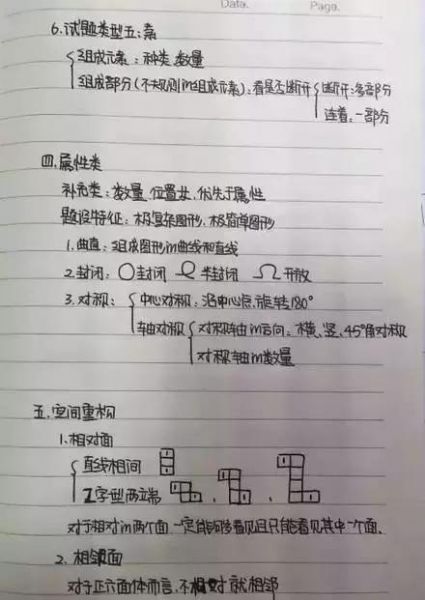 Data.   Page.
6.试题类型五:素
组成元素:种类 数量
组成部分(不规则的组成元素):看是否断开 断开:多部分
连着:一部分
四.属性类
补充类:数量,位置类,优先于属性
题设特征:极复杂图形,极简单图形
1.曲直:组成图形的曲线和直线
2.封闭:封闭 半封闭 开放
3.对称:中心对称:沿中心点,旋转180°
轴对称 对称轴的方向,横、竖、45°角对称
对称轴的数量
五.空间重构
1.相对面
直线相间
Z字型两端 、 、
对于相对的两个面,一定能够看见且只能看见其中一个面.
2.相邻面
对于正六面体而言,不相对就相邻